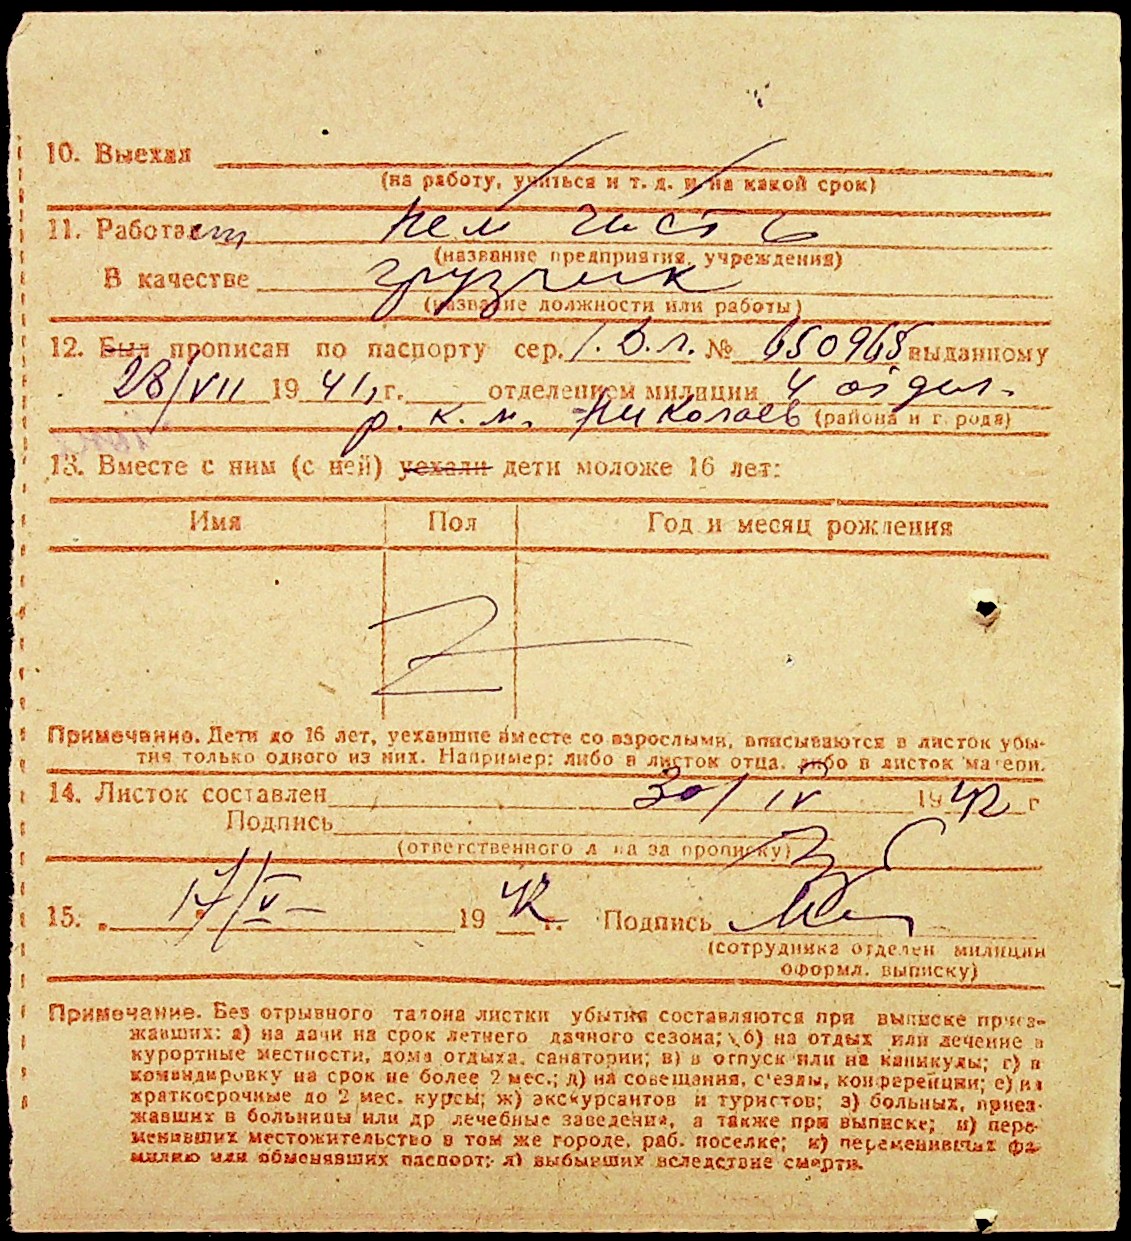 10. Выехал
(на работу, учиться и т. д. и на какой срок)
11. Работает нем часть
(название предприятия, учреждения)
В качестве грузчик
(название должности или работы)
12. Был прописан по паспорту сер. I. В.л. № 650965 выданному
28/VII 1941, г. отделением милиции 4 отдел.
р. к. м. Николаев (района и города)
13. Вместе с ним (с ней) уехали дети моложе 16 лет:
Имя Пол Год и месяц рождения
Примечание. Дети до 16 лет, уехавшие вместе со взрослыми, вписываются в листок убы-
тия только одного из них. Например: либо в листок отца, либо в листок матери.
14. Листок составлен 30/IV 1942 г
Подпись
(ответственного лица за прописку)
15. 17/V 1942 г. Подпись
(сотрудника отделен. милиции
оформл. выписку)
Примечание. Без отрывного талона листки убытия составляются при выписке приез-
жавших: а) на дачи на срок летнего дачного сезона; б) на отдых или лечение в
курортные местности, дома отдыха, санатории; в) в отпуск или на каникулы; г) в
командировку на срок не более 2 мес.; д) на совещания, с'езды, конференции; е) на
краткосрочные до 2 мес. курсы; ж) экскурсантов и туристов; з) больных, приез-
жавших в больницы или др лечебные заведения, а также при выписке; и) пере-
менивших местожительство в том же городе, раб. поселке; к) переменивших фа-
милию или обменявших паспорт; л) выбывших вследствие смерти.